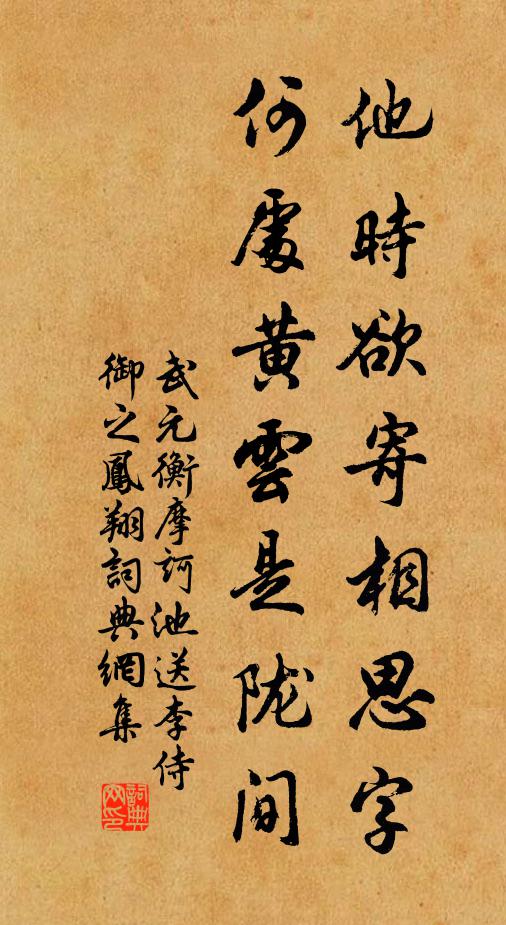 他時欲寄相思字
何處黃雲是陇间
武元衡摩訶池送李侍
御之鳳翔詞典網集
詞典
网印